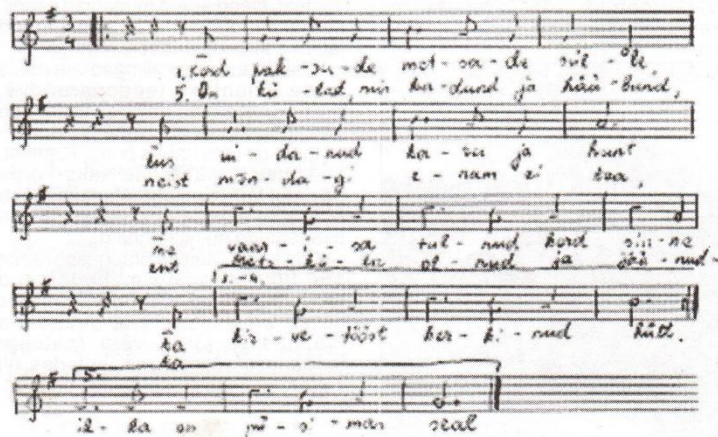 3
4
1. Kord pak-su-de met-sa-de sül-le,
5. On kü-lad, mis ka-dund ja hää-bund,
kus ui-da-nud ka-ru ja hunt
neist mõn-da-gi e-nam ei tea,
me vaar-i-sa tul-nud kord sin-ne
ent ol-nud ja jää-nud-
1.-4.
ka kir-ve-tööst ker-ki-nud
ka
5.
ik-ka on pü-si-mas seal